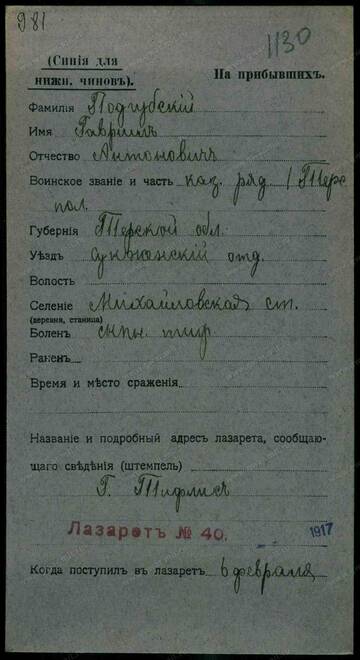 981
1130
(Синія для
нижн. чиновъ).
На прибывшихъ.
Фамилія Подгубскій
Имя Гавриилъ
Отчество Антоновичъ
Воинское званіе и часть каз. ряд. 1 Терс
пол.
Губернія Терской обл.
Уѣздъ Сунженскій отд.
Волость
Селеніе Михайловская ст.
(деревня, станица)
Боленъ сыпн. тиф
Раненъ
Время и мѣсто сраженія
Названіе и подробный адресъ лазарета, сообщаю-
щаго свѣдѣнія (штемпель)
Г. Тифлисъ
Лазаретъ № 40.
1917
Когда поступилъ въ лазаретъ 6 февраля